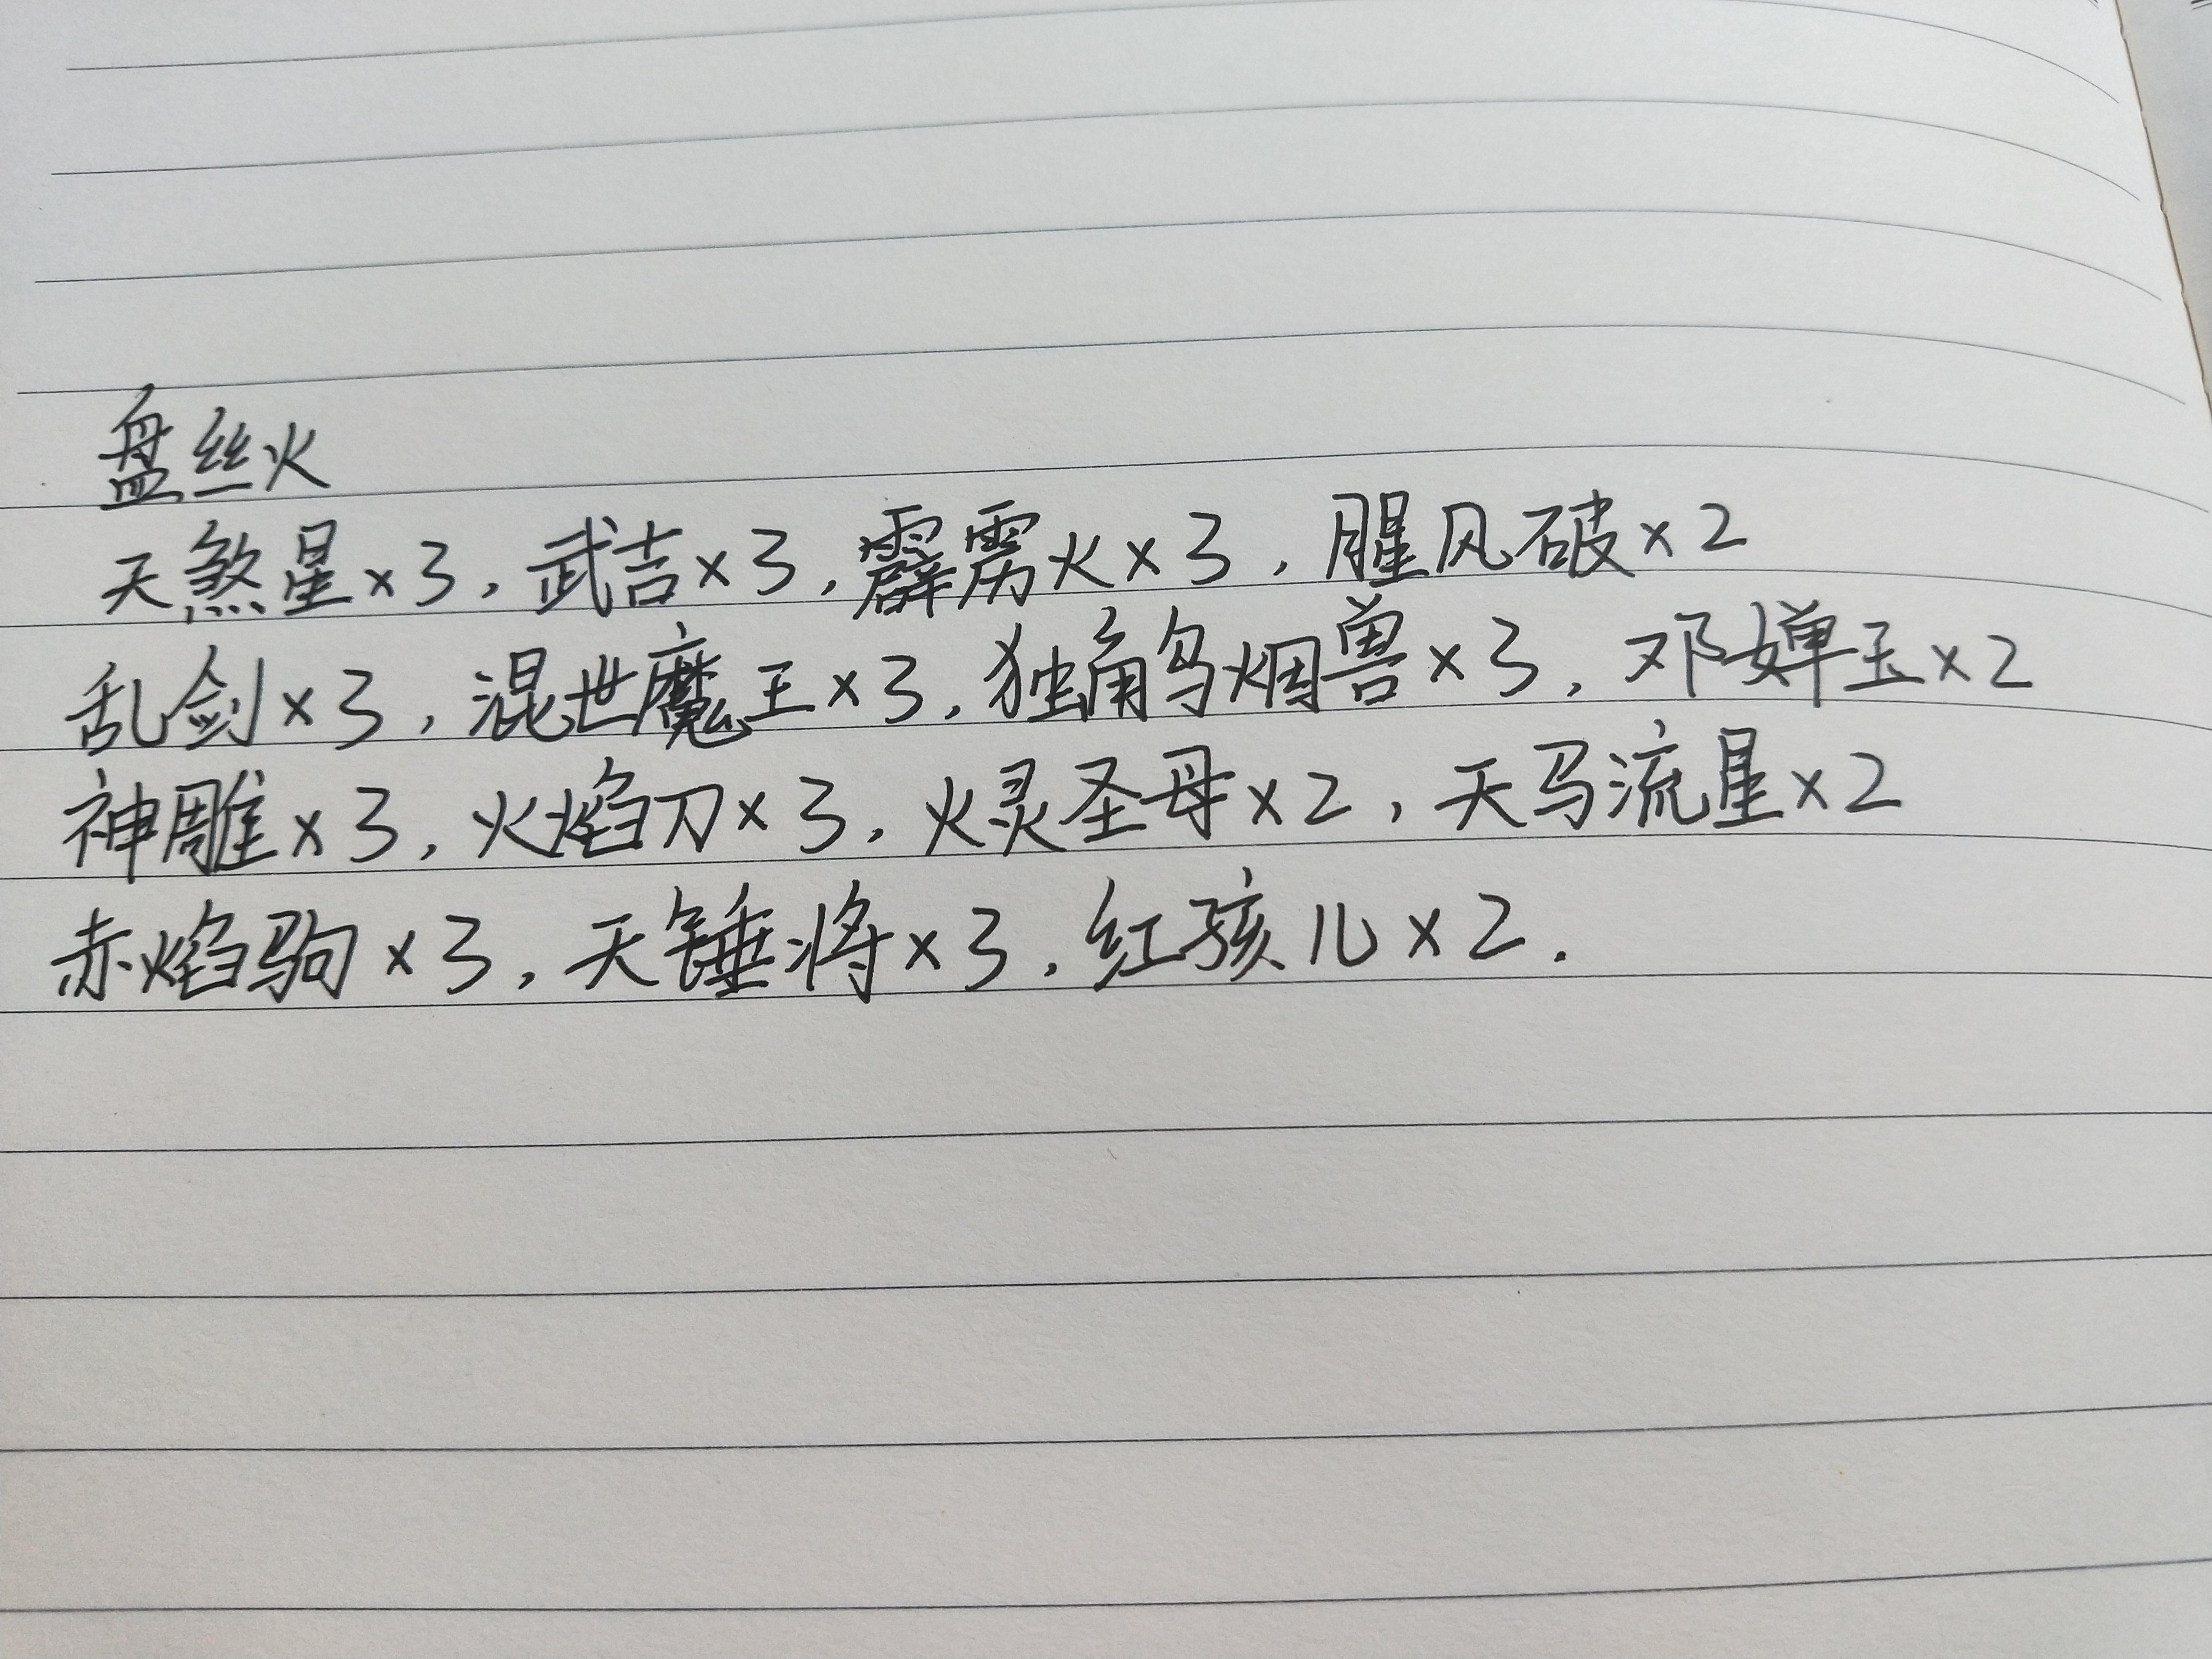 盘丝火
天煞星×3,武吉×3,霹雳火×3,腥风破×2
乱剑×3,混世魔王×3,独角乌烟兽×3,邓婵玉×2
神雕×3,火焰刀×3,火灵圣母×2,天马流星×2
赤焰驹×3,天锤将×3,红孩儿×2.